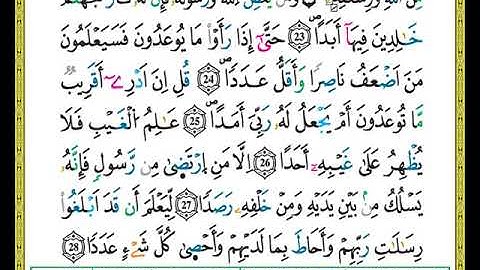 خَٰلِدِينَ فِيهَآ أَبَدًا ۝23 حَتَّىٰٓ إِذَا رَأَوْا۟ مَا يُوعَدُونَ فَسَيَعْلَمُونَ
مَنْ أَضْعَفُ نَاصِرًا وَأَقَلُّ عَدَدًا ۝24 قُلْ إِنْ أَدْرِىٓ أَقَرِيبٌ
مَّا تُوعَدُونَ أَمْ يَجْعَلُ لَهُۥ رَبِّىٓ أَمَدًا ۝25 عَٰلِمُ الْغَيْبِ فَلَا
يُظْهِرُ عَلَىٰ غَيْبِهِۦٓ أَحَدًا ۝26 إِلَّا مَنِ اِرْتَضَىٰ مِن رَّسُولٍ فَإِنَّهُۥ
يَسْلُكُ مِنۢ بَيْنِ يَدَيْهِ وَمِنْ خَلْفِهِۦ رَصَدًا ۝27 لِّيَعْلَمَ أَن قَدْ أَبْلَغُوا۟
رِسَٰلَٰتِ رَبِّهِمْ وَأَحَاطَ بِمَا لَدَيْهِمْ وَأَحْصَىٰ كُلَّ شَىْءٍ عَدَدًا ۝28